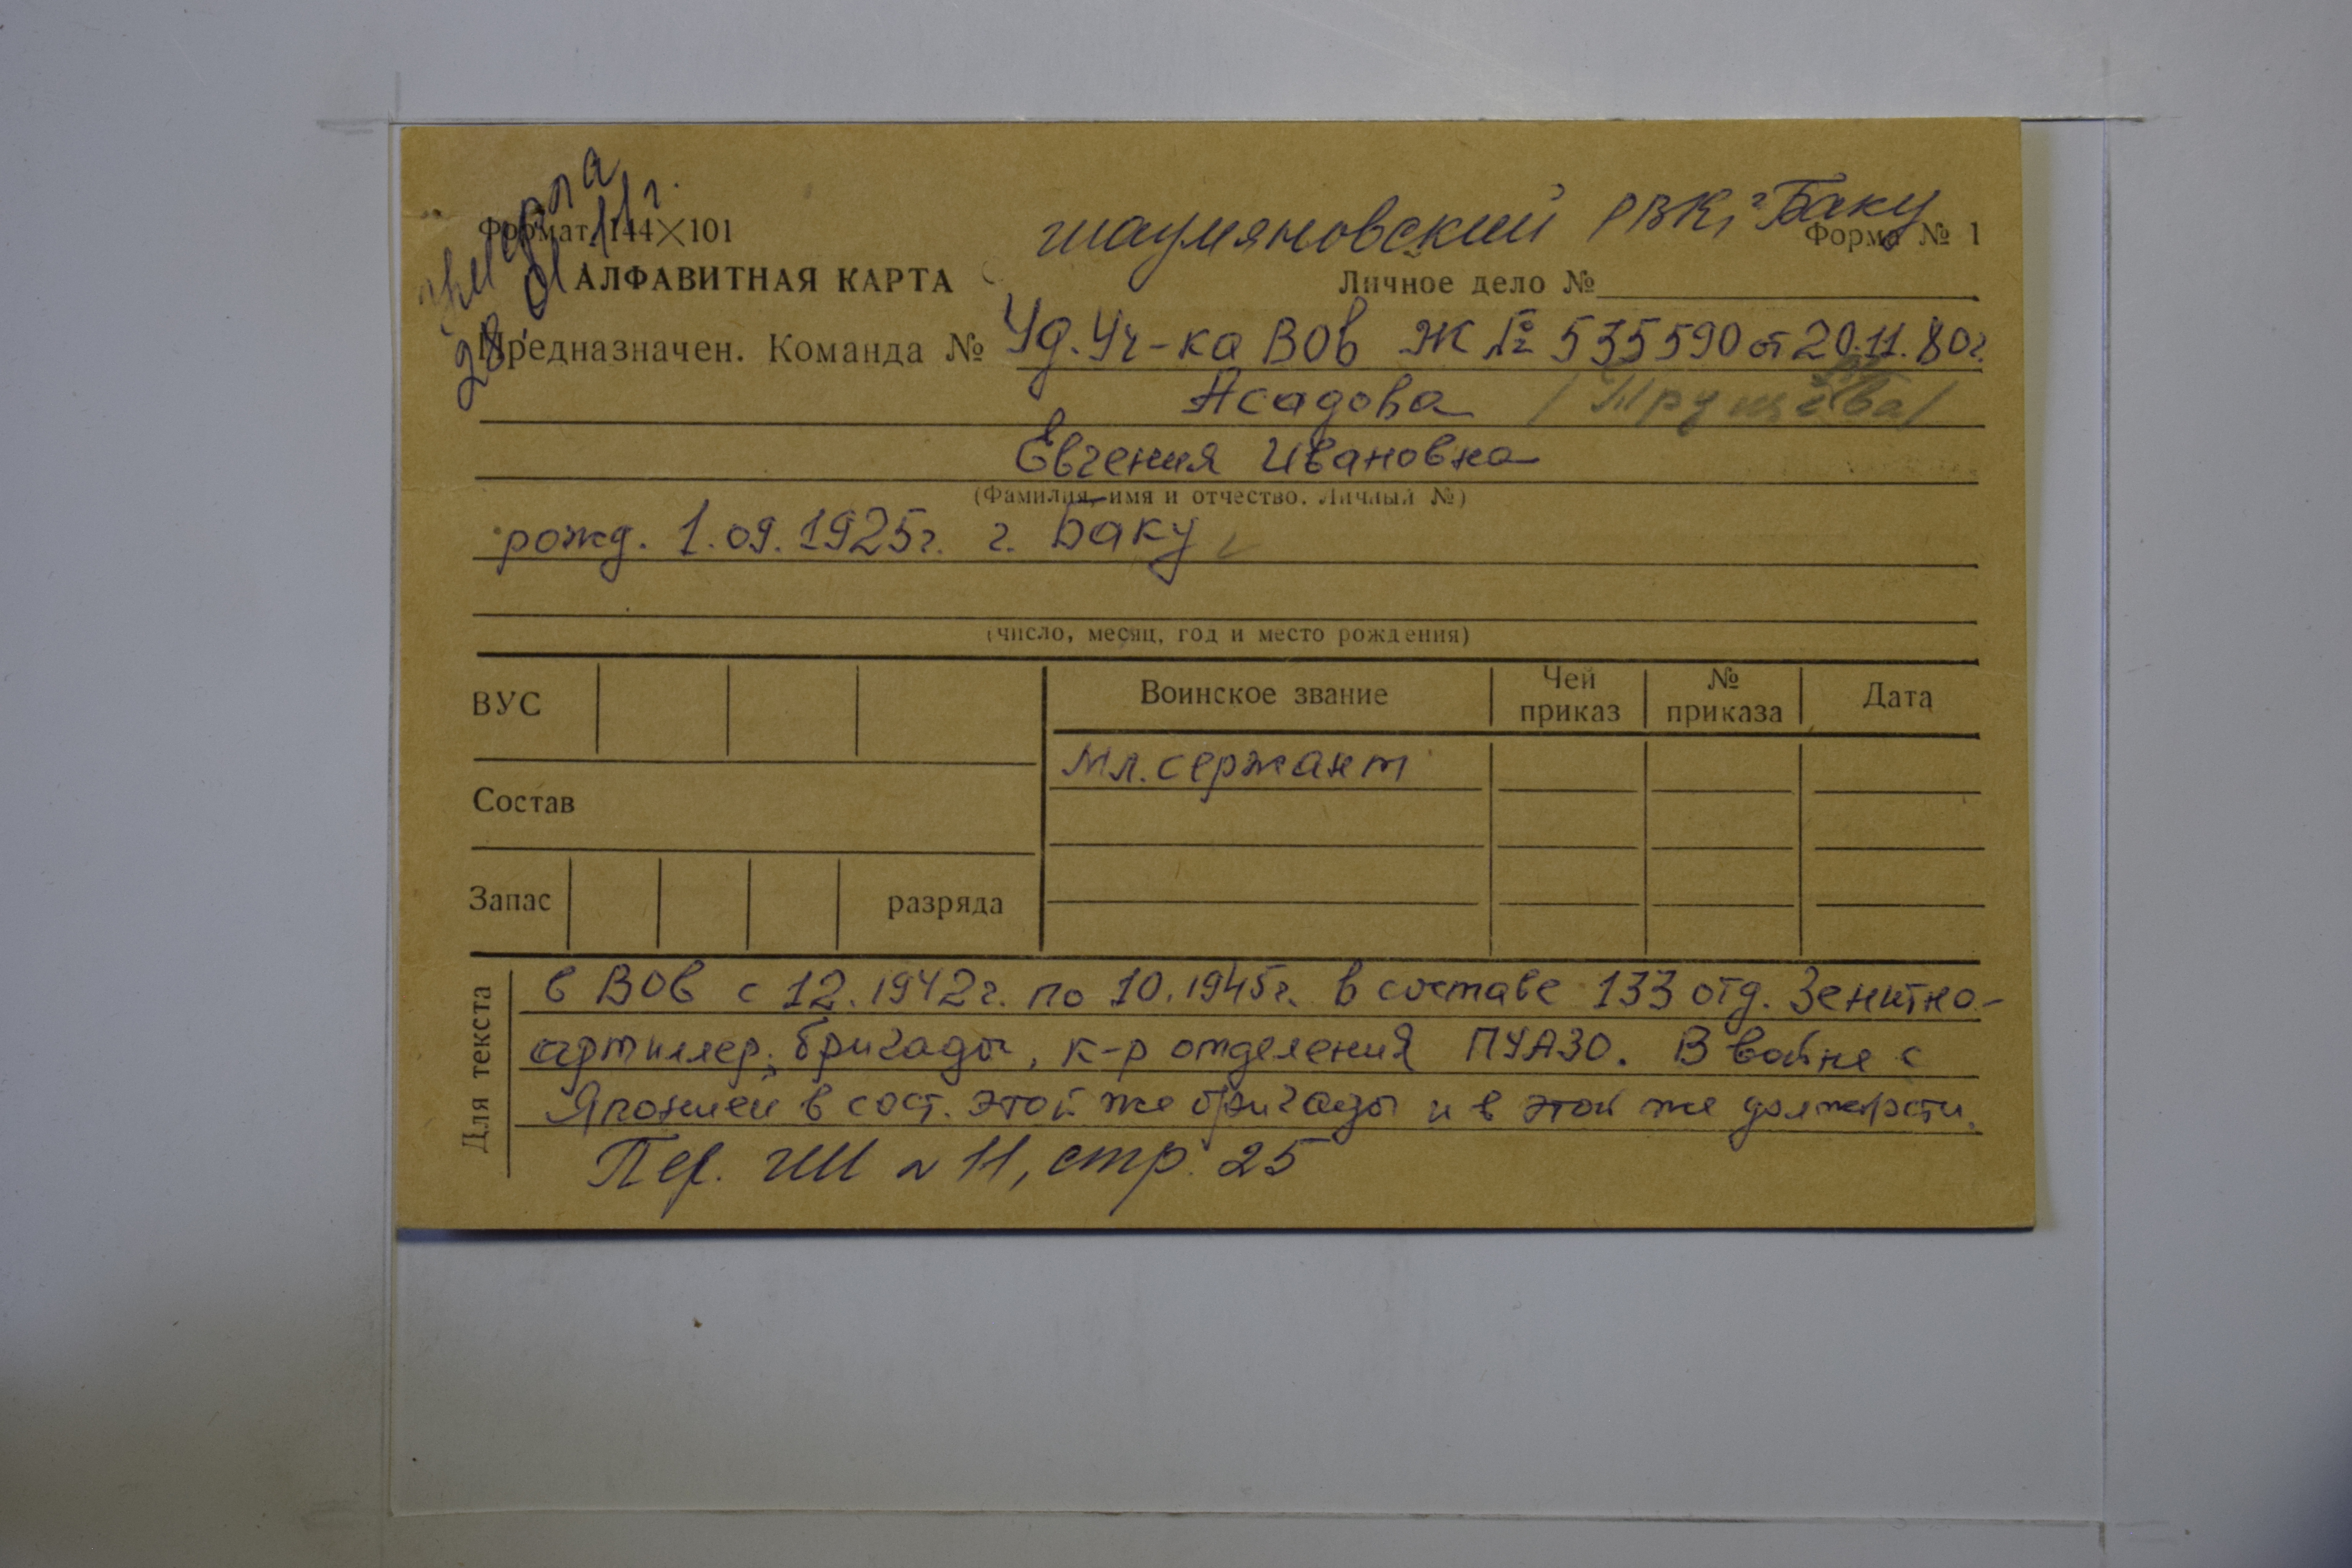 умерла
28.01.11г.
Формат 144×101
шаумяновский РВК, г Баку
Форма № 1
АЛФАВИТНАЯ КАРТА
Личное дело №
Предназначен. Команда №
Уд. Уч-ка ВОв Ж № 535590 от 20.11.80г.
Асадова
Евгения Ивановна
(Фамилия, имя и отчество. Личный №)
рожд. 1.09.1925г. г. Баку
(число, месяц, год и место рождения)
ВУС
Воинское звание
Чей приказ
№ приказа
Дата
мл. сержант
Состав
Запас
разряда
Для текста
в ВОв с 12.1942г. по 10.1945г. в составе 133 отд. Зенитно-
артиллер. бригады, к-р отделения ПУАЗО. В войне с
Японией в сост. этой же бригады и в этой же должности.
стр. 25